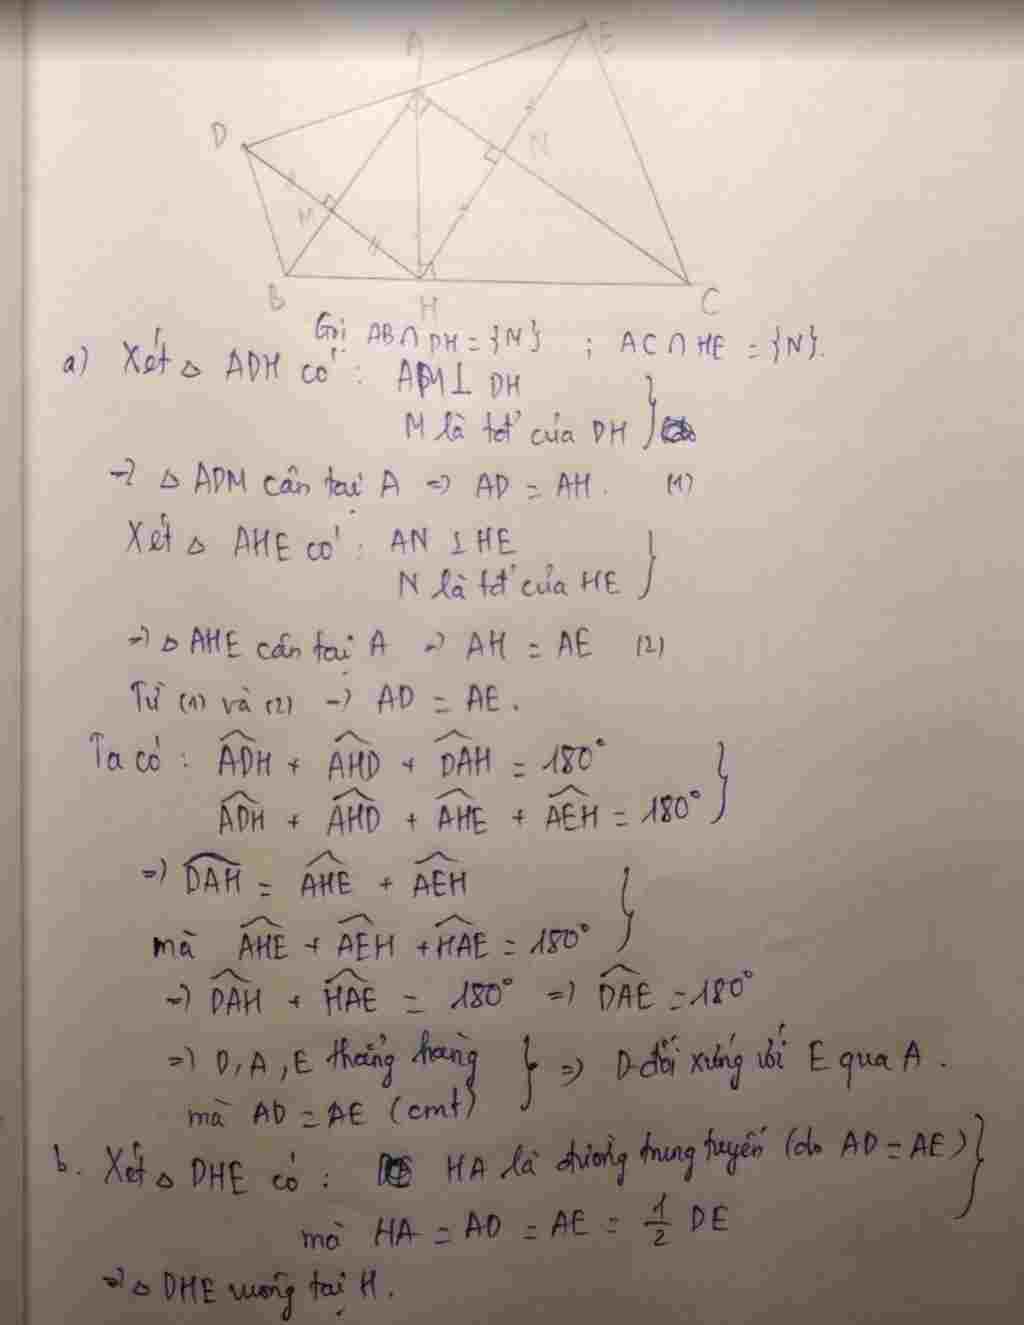 A
E
D
N
M
B
H
C
Gọi AB ∩ DH = {M} ; AC ∩ HE = {N}.
a) Xét △ ADH có : AM ⊥ DH
M là tđ' của DH
=> △ ADM cân tại A => AD = AH. (1)
Xét △ AHE có : AN ⊥ HE
N là tđ' của HE
=> △ AHE cân tại A => AH = AE (2)
Từ (1) và (2) => AD = AE.
Ta có : \widehat{ADH} + \widehat{AHD} + \widehat{DAH} = 180°
\widehat{ADH} + \widehat{AHD} + \widehat{AHE} + \widehat{AEH} = 180°
=> \widehat{DAH} = \widehat{AHE} + \widehat{AEH}
mà \widehat{AHE} + \widehat{AEH} + \widehat{HAE} = 180°
=> \widehat{DAH} + \widehat{HAE} = 180° => \widehat{DAE} = 180°
=> D, A, E thẳng hàng } => D đối xứng với E qua A.
mà AD = AE (cmt)
b. Xét △ DHE có : HA là đường trung tuyến (do AD = AE)
mà HA = AD = AE = 1/2 DE
=> △ DHE vuông tại H.